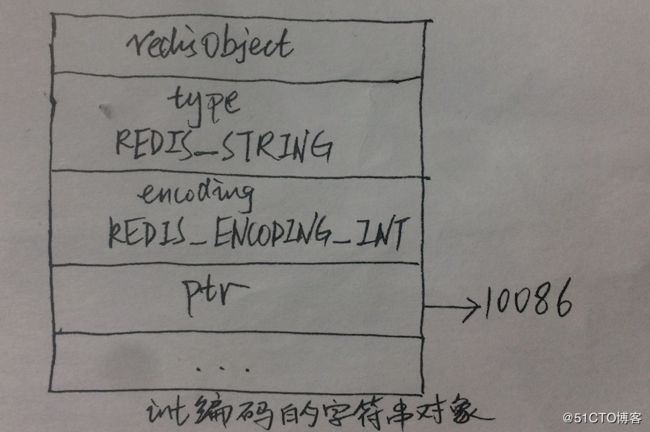 redisObject
type
REDIS_STRING
encoding
REDIS_ENCODING_INT
ptr
10086
...
int编码的字符串对象
@51CTO博客